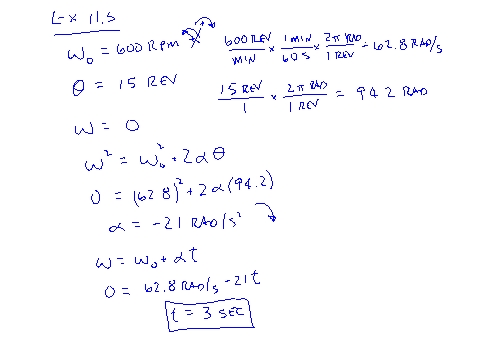 Ex 11.5
ω₀ = 600 RPM
600 REV / MIN × 1 MIN / 60 S × 2π RAD / 1 REV = 62.8 RAD/S
θ = 15 REV
15 REV / 1 × 2π RAD / 1 REV = 94.2 RAD
ω = 0
ω² = ω₀² + 2αθ
0 = (62.8)² + 2α(94.2)
α = -21 RAD/S²
ω = ω₀ + αt
0 = 62.8 RAD/S - 21t
t = 3 SEC